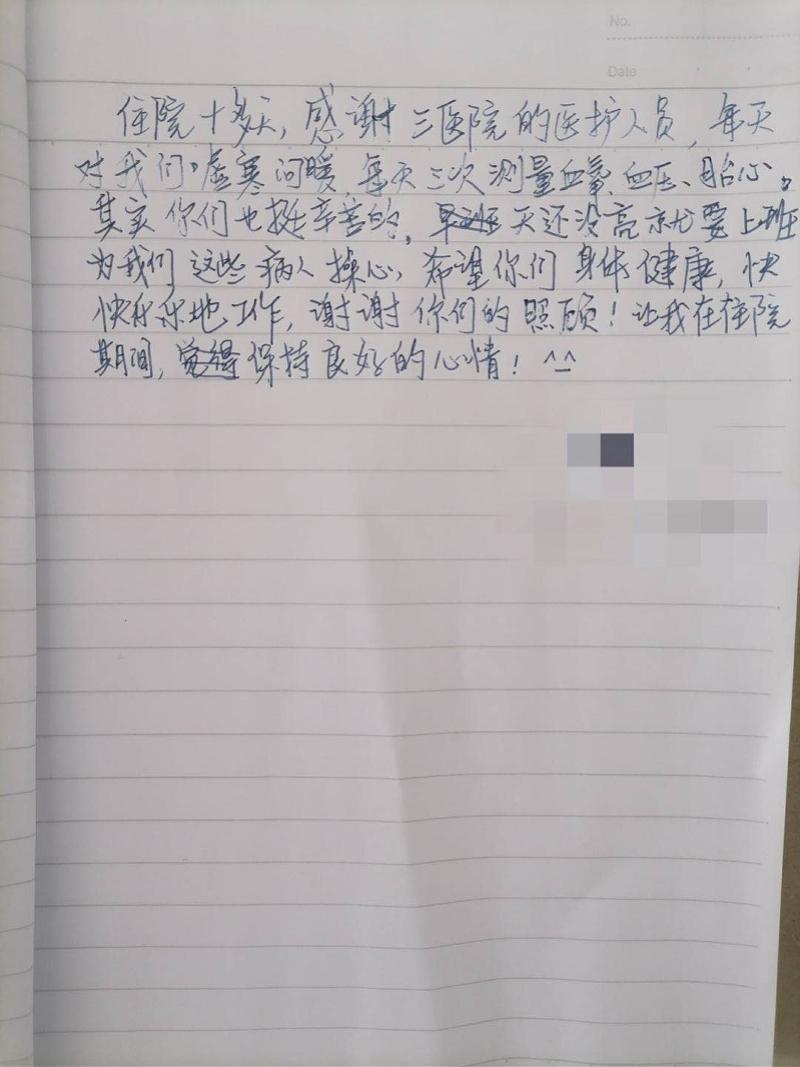 No.
Date
住院十多天，感谢三医院的医护人员，每天
对我们虚寒问暖，每天三次测量血氧、血压、胎心。
其实你们也挺辛苦的，早班天还没亮就要上班
为我们这些病人操心，希望你们身体健康，快
快乐乐地工作，谢谢你们的照顾！让我在住院
期间，觉得保持良好的心情！^_^